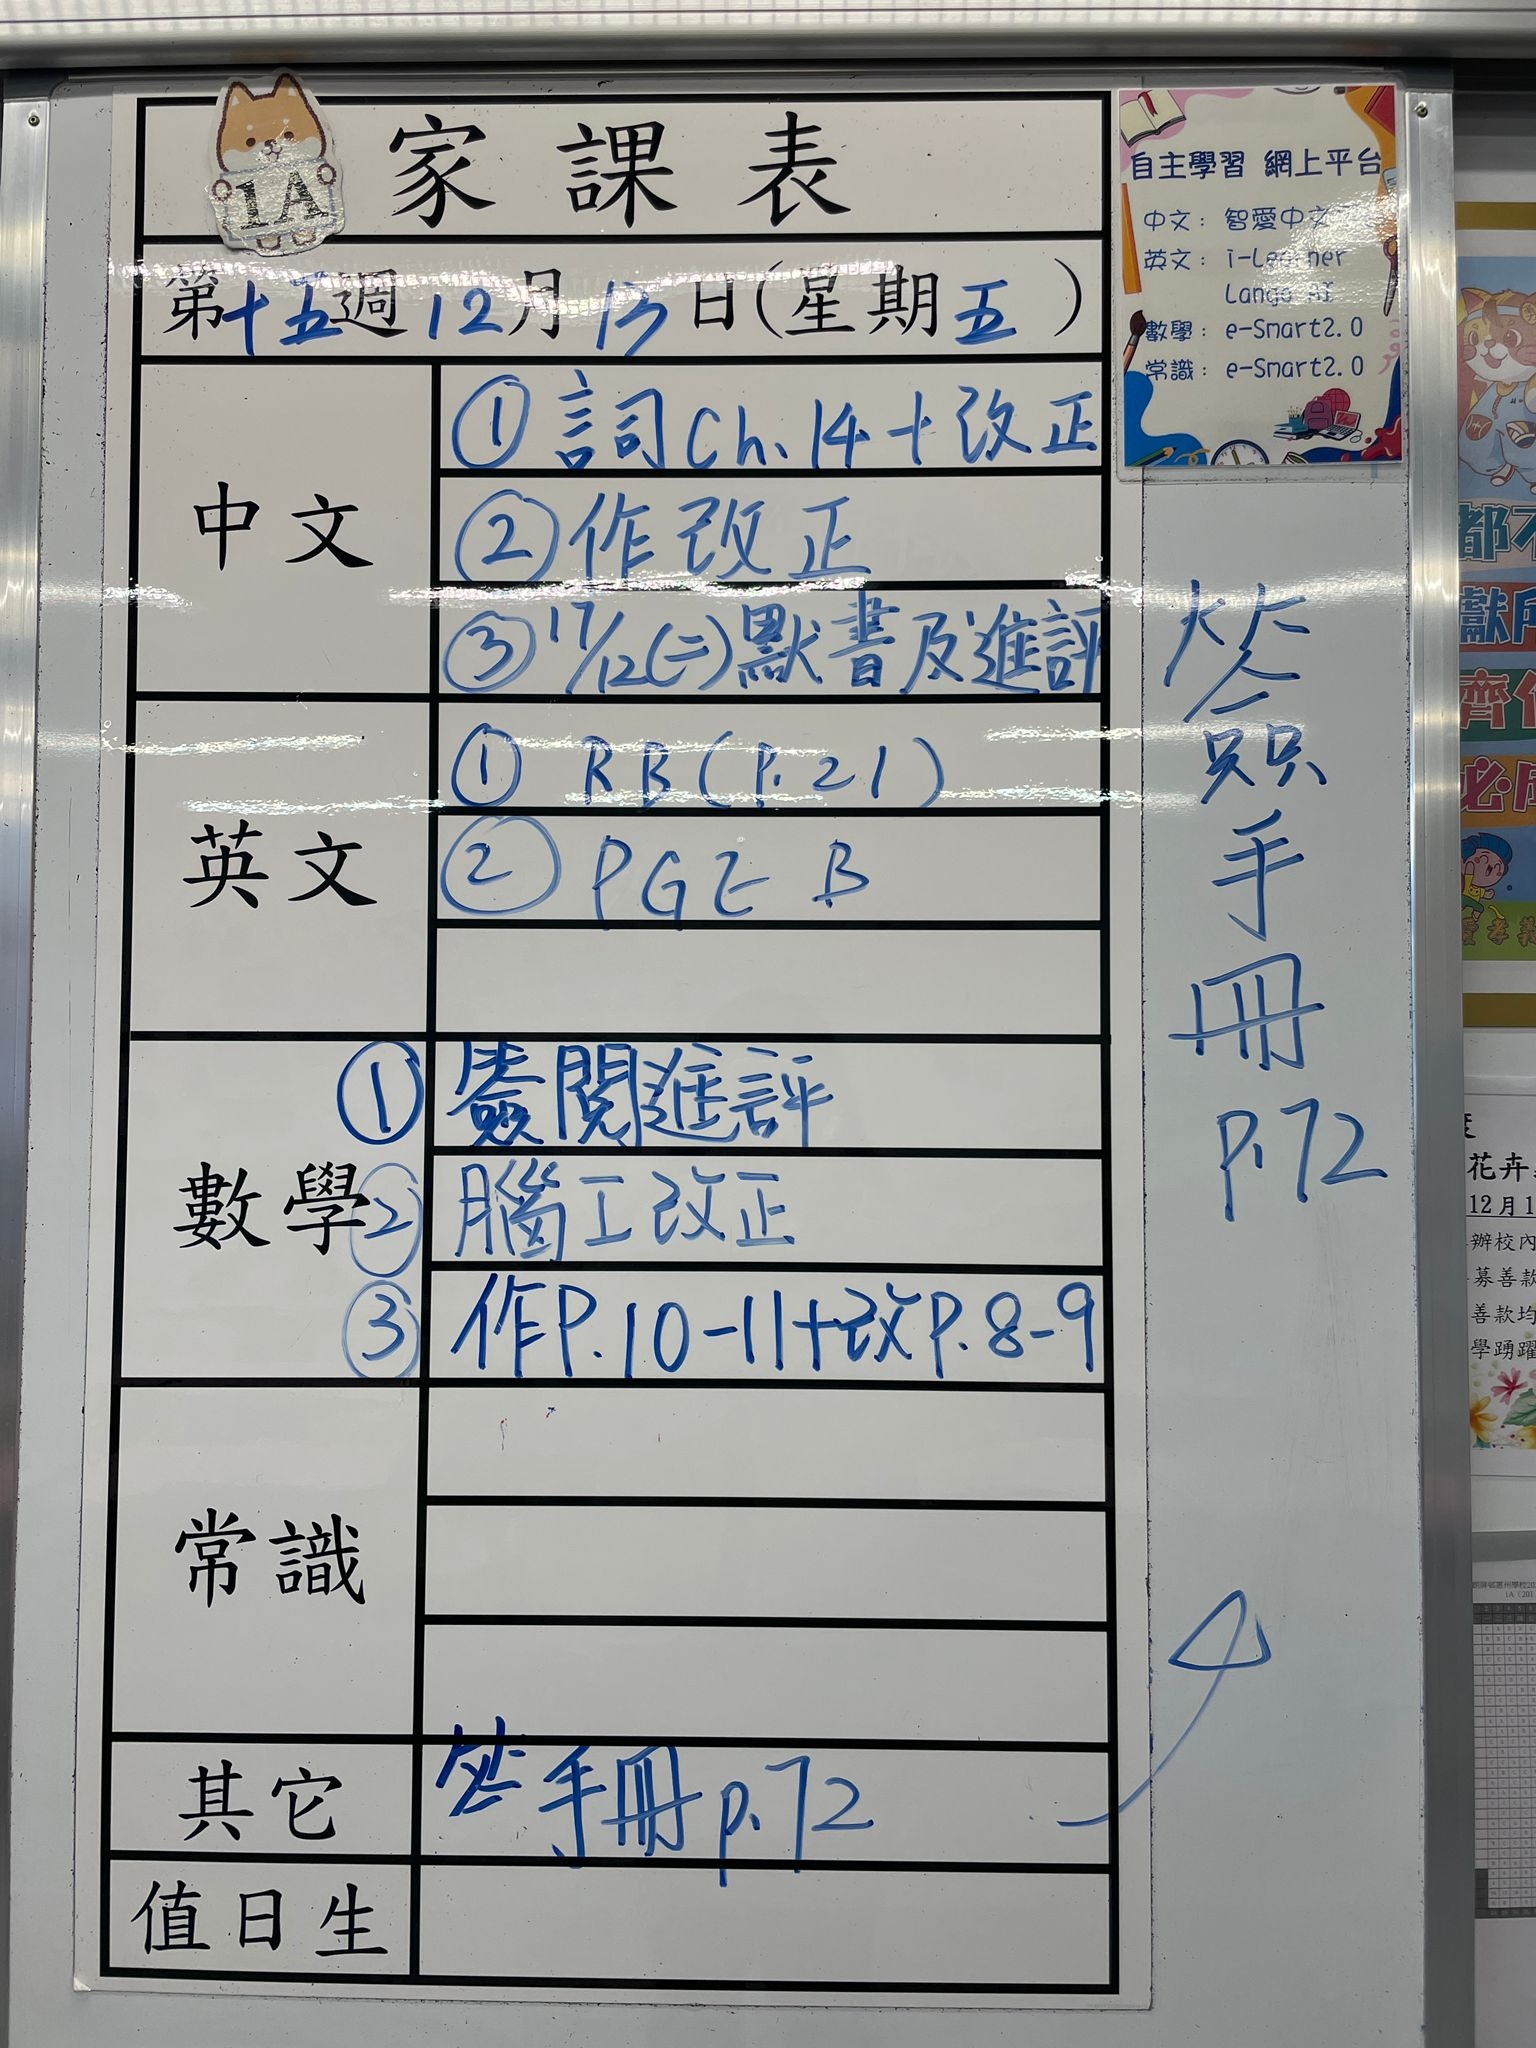 1A
家課表
第十五週12月13日(星期五)
中文
①詞Ch.14+改正
②作改正
③17/12(二)默書及進評
英文
①RB(P.21)
②PGE B
數學
①簽閱進評
②腦工改正
③作P.10-11+改P.8-9
常識
其它
手冊p.72
值日生
簽手冊
p.72
自主學習 網上平台
中文: 智愛中文
英文: i-Learner
Lango AI
數學: e-Smart2.0
常識: e-Smart2.0
花卉
12月1
辦校內
募善款
善款均
學踴躍